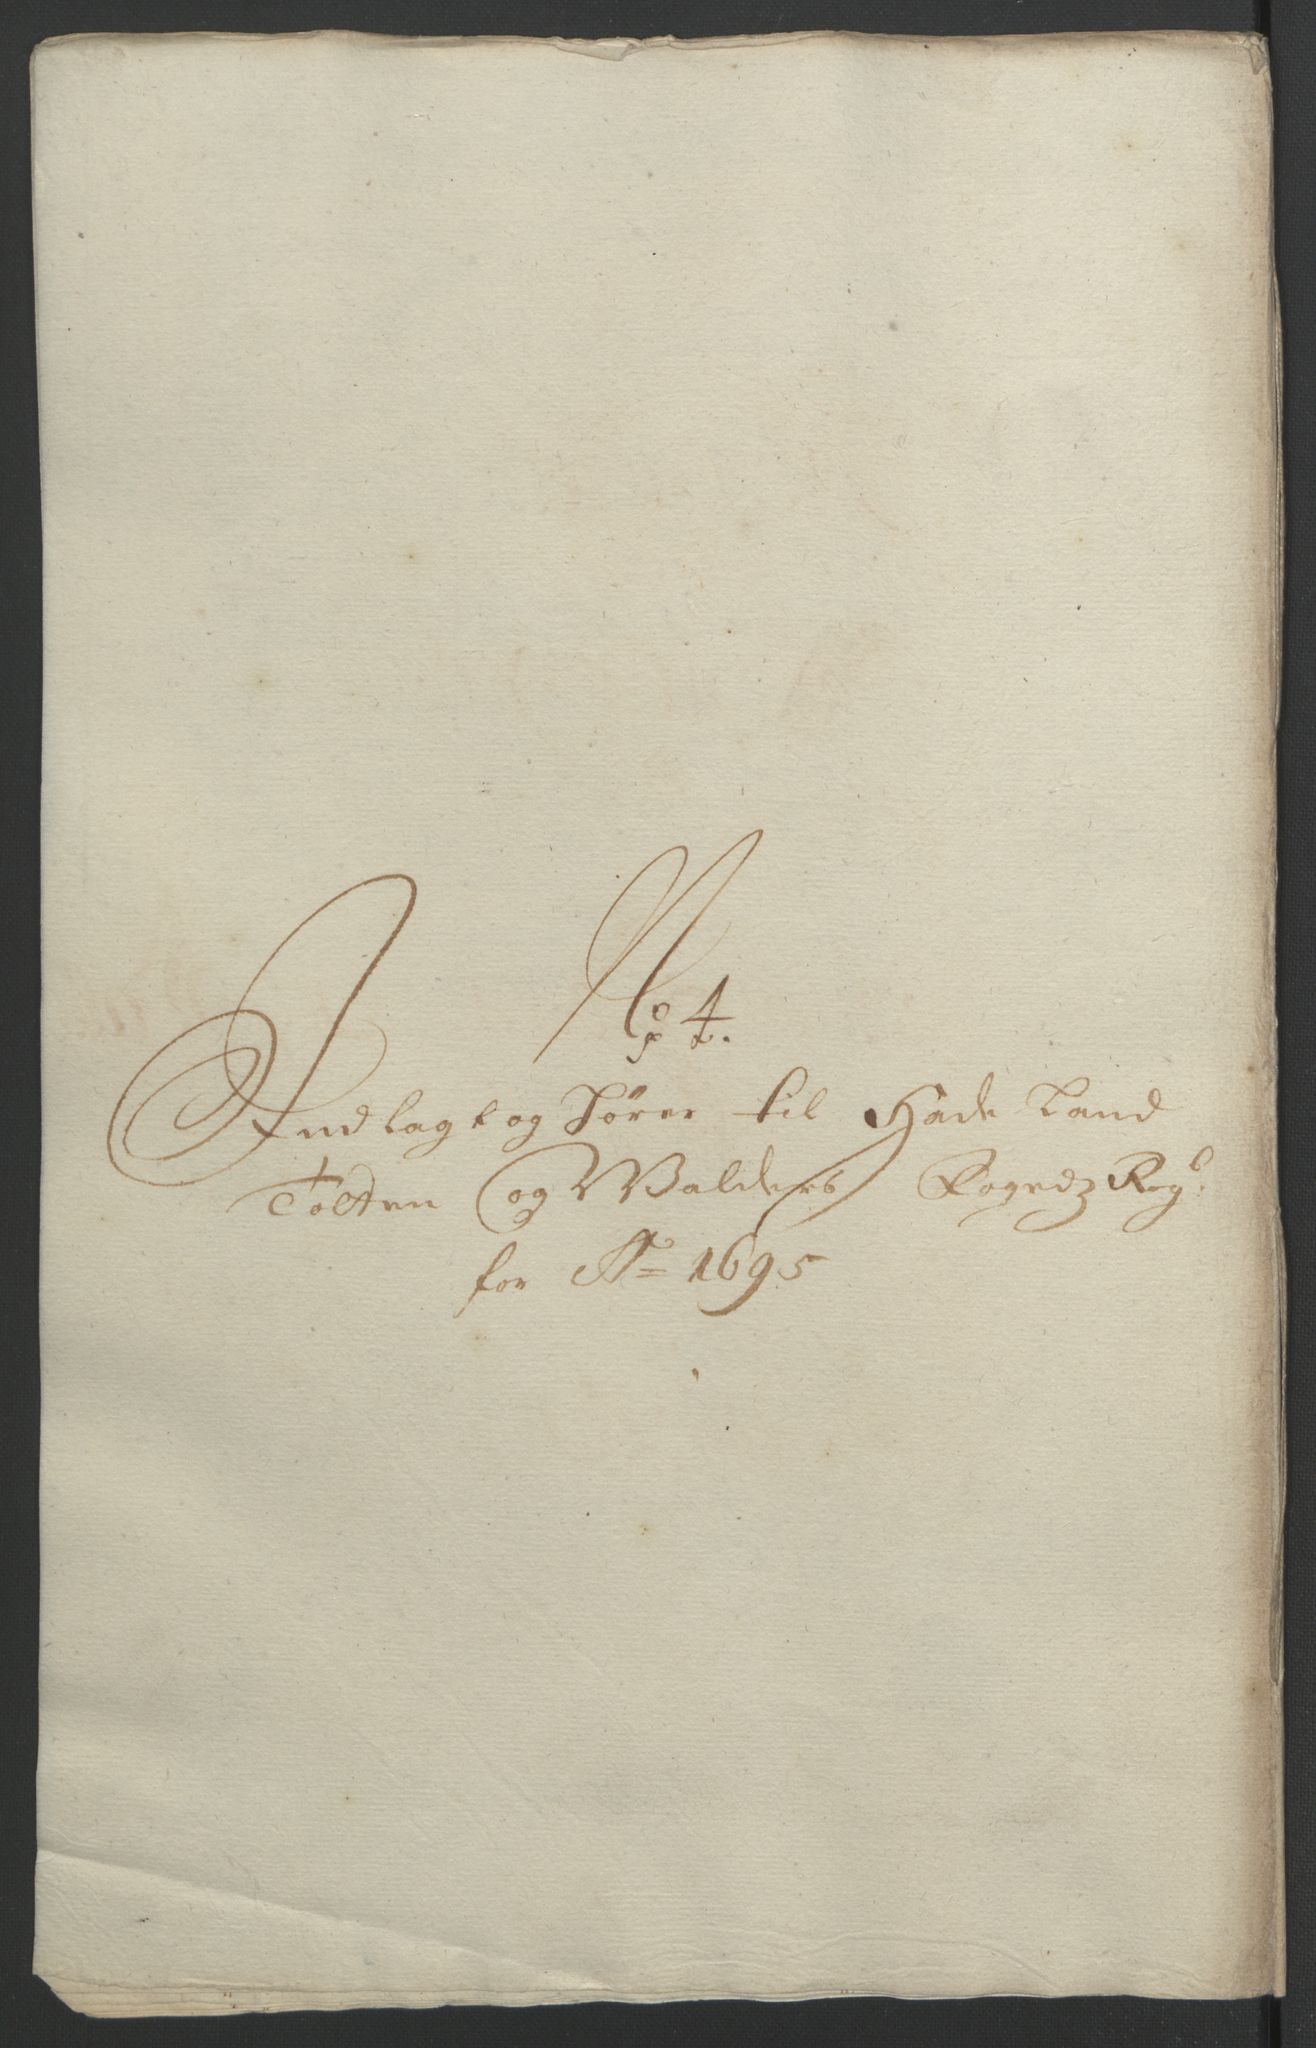 No 4.
Indlagt og hører til Hade Land
Totten og Walders Fogedz Regb.
for Ao 1695